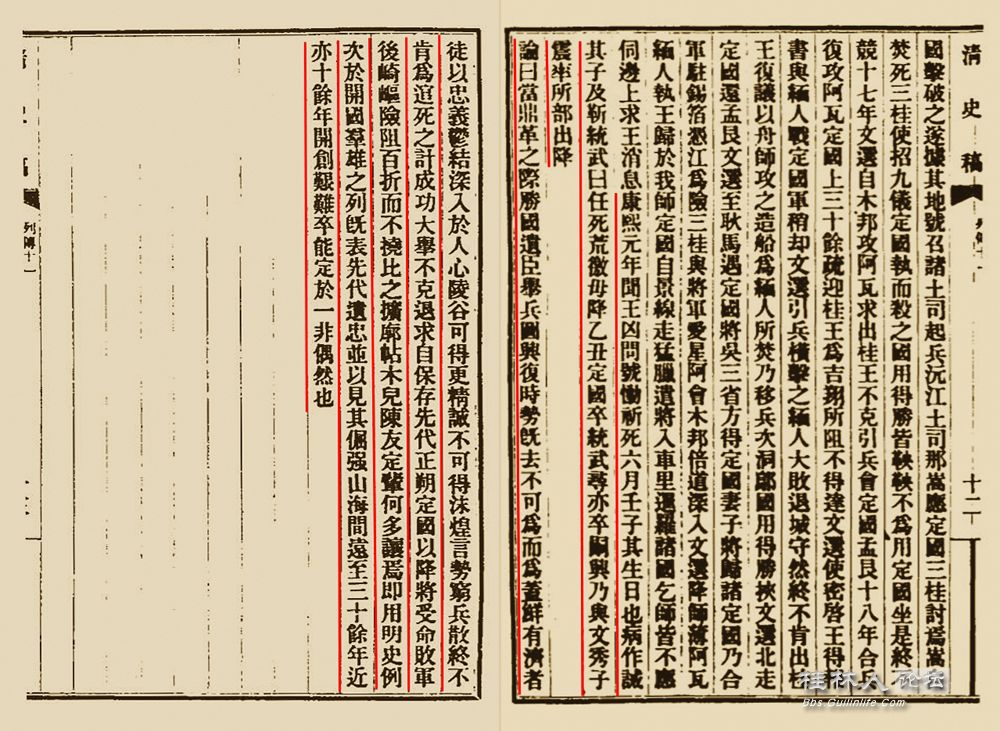 清史稿 列傳十一 十二
國擊破之遂據其地號召諸土司起兵沅江土司那嵩應定國三桂討焉嵩
焚死三桂使招九儀定國執而殺之國用得勝皆鞅鞅不爲用定國坐是終不
競十七年文選自木邦攻阿瓦求出桂王不克引兵會定國孟艮十八年合兵
復攻阿瓦定國上三十餘疏迎桂王爲吉翔所阻不得達文選使密啓王得
書與緬人戰定國軍稍却文選引兵橫擊之緬人大敗退城守然終不肯出桂
王復議以舟師攻之造船爲緬人所焚乃移兵次洞鄔國用得勝挾文選北走
定國還孟艮文選至耿馬遇定國將吳三省方得定國妻子將歸諸定國乃合
軍駐錫箔憑江爲險三桂與將軍愛星阿會木邦倍道深入文選降師薄阿瓦
緬人執王歸於我師定國自景線走猛臘遣將入車里暹羅諸國乞師皆不應
伺邊上求王消息康熙元年聞王凶問號慟祈死六月壬子其生日也病作誡
其子及靳統武曰任死荒徼毋降乙丑定國卒統武尋亦卒嗣興乃與文秀子
震率所部出降
論曰當鼎革之際勝國遺臣舉兵圖興復時勢既去不可爲而爲蓋鮮有濟者
徒以忠義鬱結深入於人心陵谷可得更精誠不可得沫煌言勢窮兵散終不
肯爲逭死之計成功大舉不克退求自保存先代正朔定國以降將受命敗軍
後崎嶇險阻百折而不撓比之擴廓帖木兒陳友定輩何多讓焉即用明史例
次於開國羣雄之列既表先代遺忠並以見其倔强山海間遠至三十餘年近
亦十餘年開創艱難卒能定於一非偶然也
列傳十一
桂林人论坛
Bbs.Guilinlife.Com